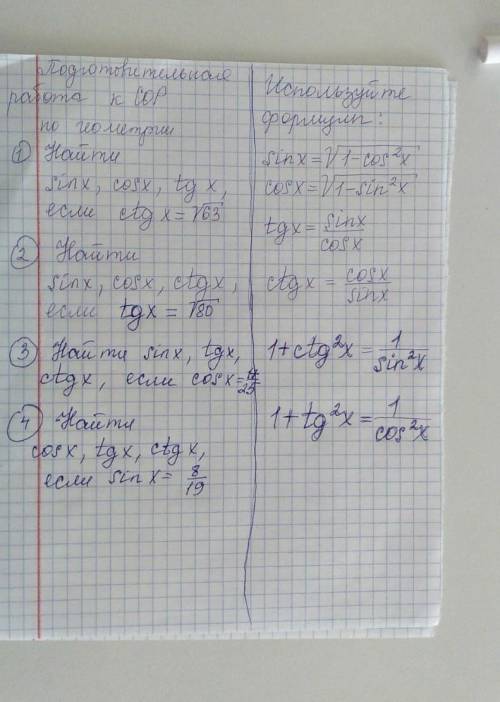 Подготовительная
работа к СОР
по геометрии
① Найти
sinx, cosx, tgx,
если ctgx = √63
② Найти
sinx, cosx, ctgx,
если tgx = √80
③ Найти sinx, tgx,
ctgx, если cosx=
④ Найти
cosx, tgx, ctgx,
если sinx = 8/19
Используйте
формулы:
sinx = √1-cos²x
cosx = √1-sin²x
tgx = sinx/cosx
ctgx = cosx/sinx
1+ctg²x = 1/sin²x
1+tg²x = 1/cos²x